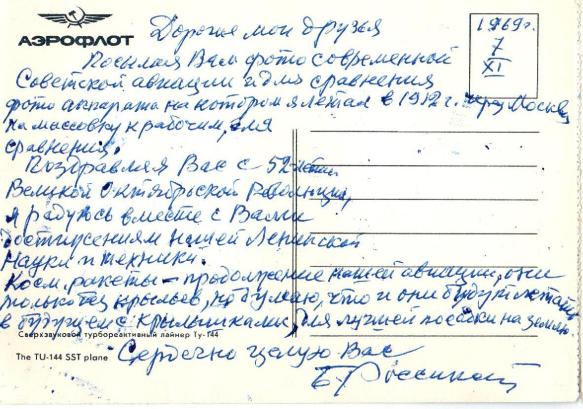 АЭРОФЛОТ
Дорогие мои друзья
1969 г.
7
XI
Посылаю Вам фото современной
Советской авиации и для сравнения
фото аппарата на котором я летал в 1912 г. через Москву
на массовку к рабочим, для
сравнения.
Поздравляя Вас с 52-летием
Великой Октябрьской Революции,
я радуюсь вместе с Вами
достижениям нашей Ленинской
науки и техники.
Косм. ракеты – продолжение нашей авиации, они
только без крыльев, но думаю, что и они будут летать
в будущем с крылышками, для лучшей посадки на землю
Сверхзвуковой турбореактивный лайнер Ту-144
The TU-144 SST plane
Сердечно целую Вас
Б Россинский